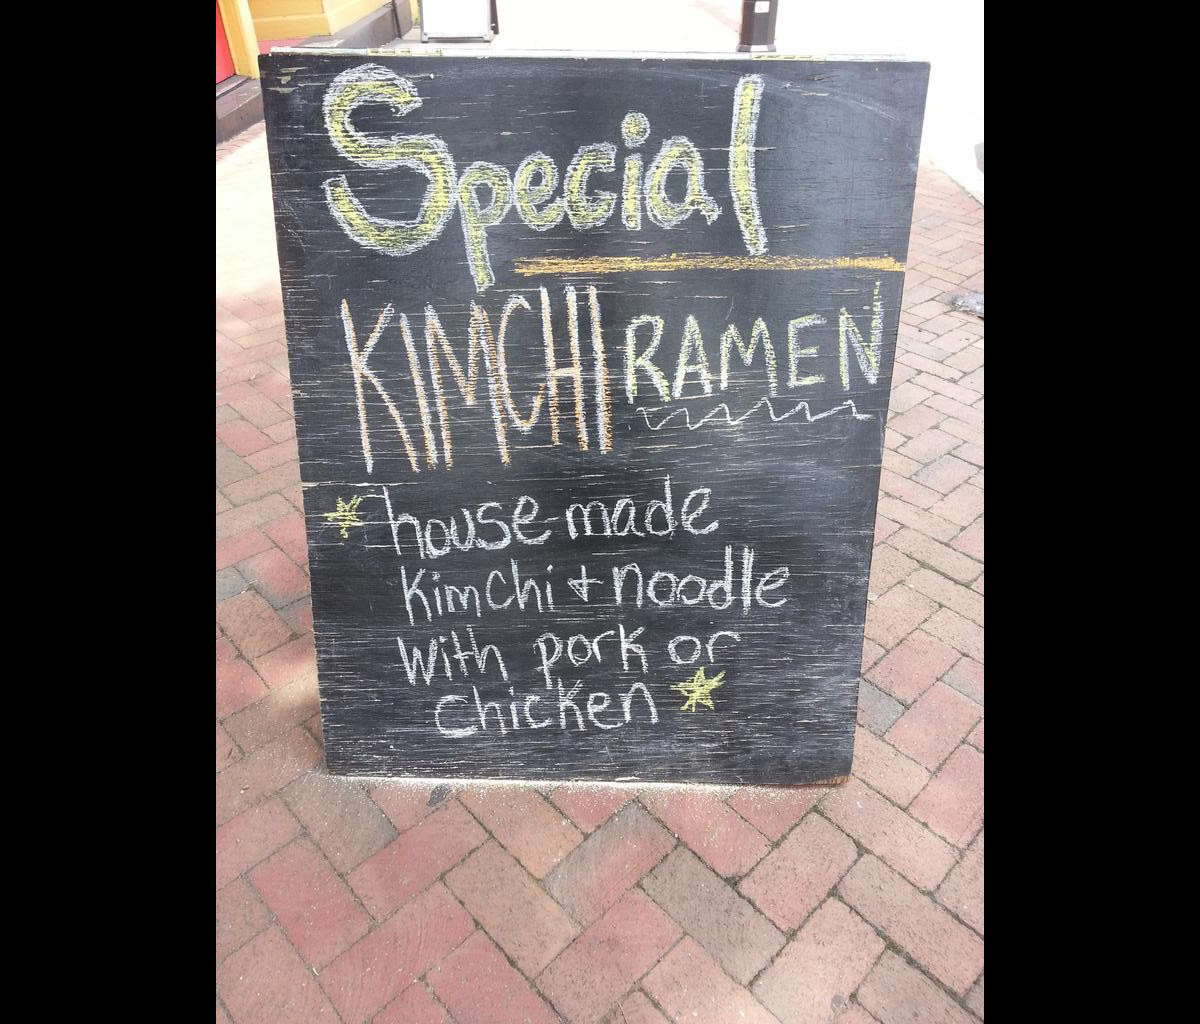 Special
KIMCHI RAMEN
house-made
Kimchi + noodle
with pork or
chicken